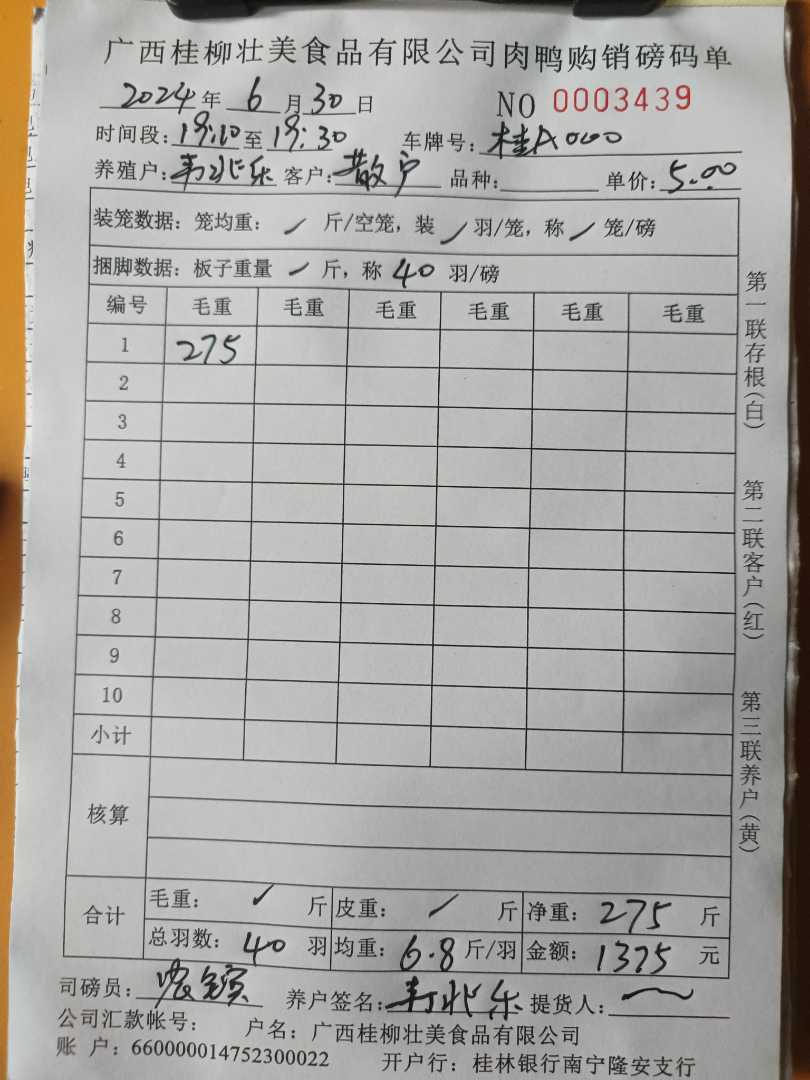 广西桂柳壮美食品有限公司肉鸭购销磅码单
2024年 6月30日 NO 0003439
时间段:19:10至19:30 车牌号:桂A000
养殖户: 客户:散户 品种: 单价:5.00
装笼数据:笼均重: / 斤/空笼,装 / 羽/笼,称 / 笼/磅
捆脚数据:板子重量 / 斤,称 40 羽/磅
编号 毛重 毛重 毛重 毛重 毛重 毛重
1 275
2
3
4
5
6
7
8
9
10
小计
核算
合计 毛重: / 斤 皮重: / 斤 净重: 275 斤
总羽数: 40 羽 均重: 6.8 斤/羽 金额: 1375 元
司磅员: 养户签名: 提货人:
公司汇款帐号: 户名:广西桂柳壮美食品有限公司
账 户:660000014752300022 开户行:桂林银行南宁隆安支行
第一联存根(白) 第二联客户(红) 第三联养户(黄)